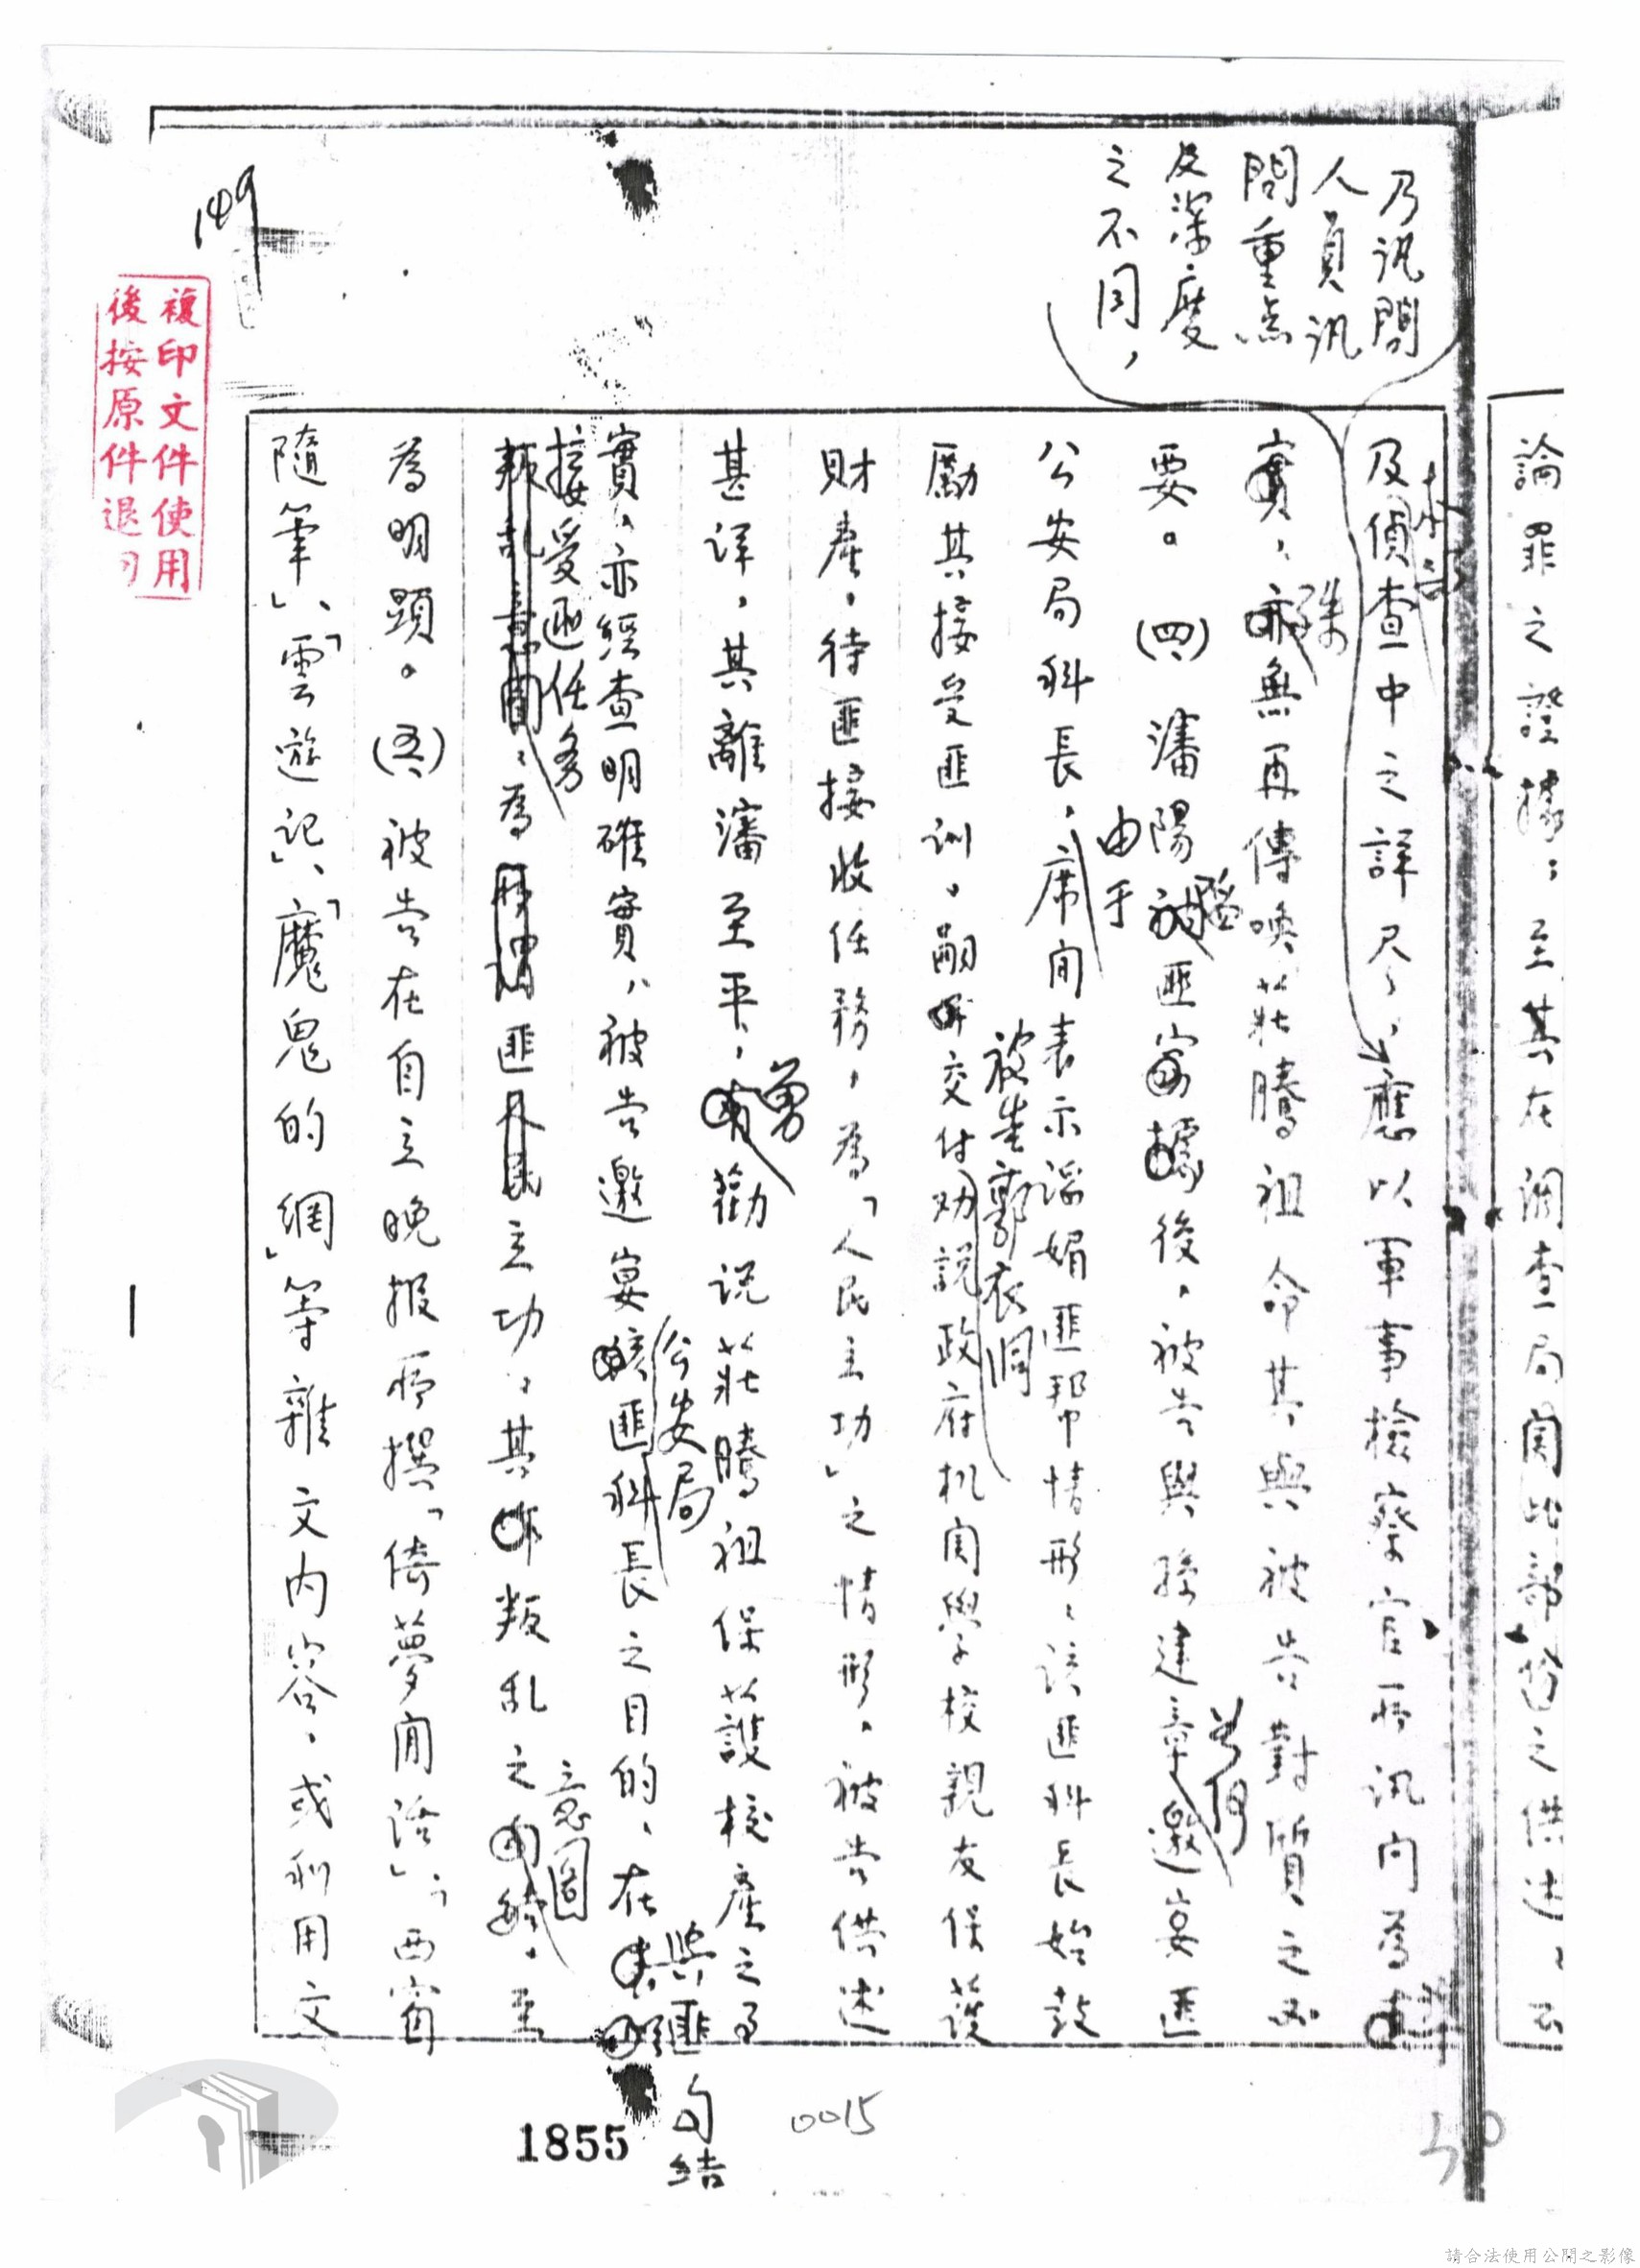 論罪之證據；至其在調查局關此部份之供述，云
乃訊問
人員訊
問重点
及深度
之不同，
及偵查中之詳尽，應以軍事檢察官所訊問為
本云
實，無再傳喚莊騰祖命其與被告對質之必
殊
要。(四)瀋陽匪後，被告與孫建章邀宴匪
公安局科長，席間表示謠媚匪幫情形，該匪科長始鼓
由于
勵其接受匪訓，嗣交付勸說政府机関學校親友保護
被告郭衣洞
財產，待匪接收任務，為「人民立功」之情形，被告供述
甚詳，其離瀋至平，勸說莊騰祖保護校產之事
實，亦經查明確實，被告邀宴該匪科長之目的，在
公安局
與匪
勾結
接受匪任務
叛乱意圖，為匪人民立功，其叛乱之，至
意圖
為明顯。(五)被告在自立晚报所撰「倚夢閒話」、「西窗
隨筆」、「雲遊記」、「魔鬼的網」等雜文內容，或利用文
149
複印文件使用
後按原件退
1855
0015
50
請合法使用公開之影像